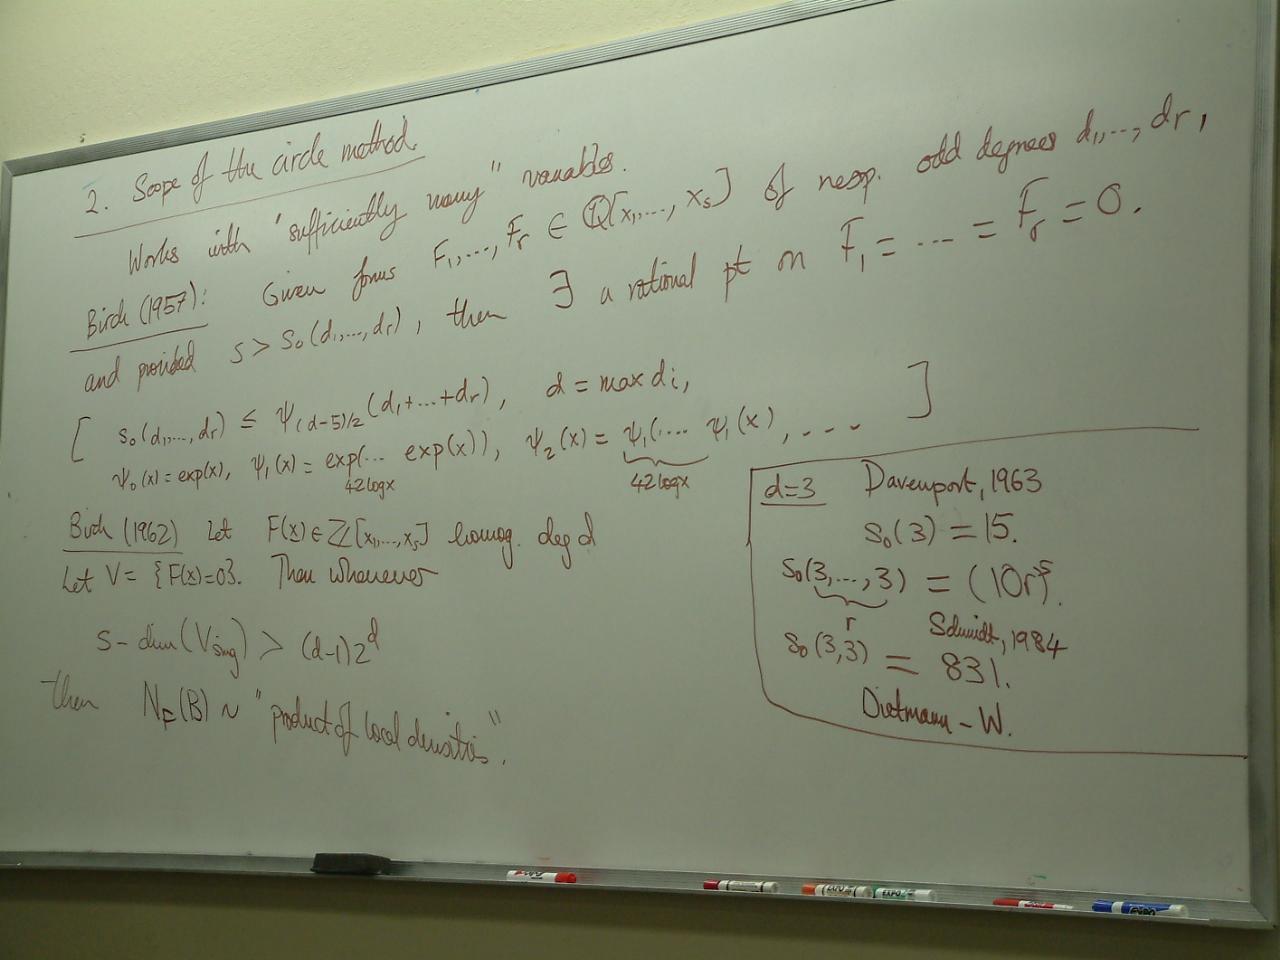 2. Scope of the circle method.
Works with "sufficiently many" variables.
Birch (1957): Given forms F₁,..., Fᵣ ∈ ℚ[x₁,..., xₛ] of resp. odd degrees d₁,..., dᵣ,
and provided s > s₀(d₁,...,dᵣ), then ∃ a rational pt on F₁ = ... = Fᵣ = 0.
[ s₀(d₁,...,dᵣ) ≤ ψ₍d-5₎/₂ (d₁+...+dᵣ), d = max dᵢ, ]
ψ₀(x) = exp(x), ψ₁(x) = exp(... exp(x)), ψ₂(x) = ψ₁(... ψ₁(x), ...
42logx 42logx
Birch (1962) Let F(x) ∈ ℤ[x₁,...,xₛ] homog. deg d
Let V = {F(x)=0}. Then whenever
s - dim(V sing) > (d-1)2ᵈ
then N_F(B) ~ "product of local densities".
d=3 Davenport, 1963
s₀(3) = 15.
s₀(3,...,3) = (10r)⁵.
r Schmidt, 1984
s₀(3,3) = 831.
Dietmann - W.
EXPO
EXPO
EXPO